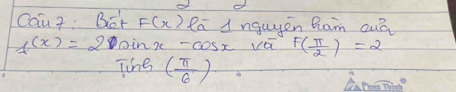 Câu 7: Biết F(x) là 1 nguyên hàm của
f(x) = 2 sin x - cos x và F(π/2) = 2
Tính (π/6)